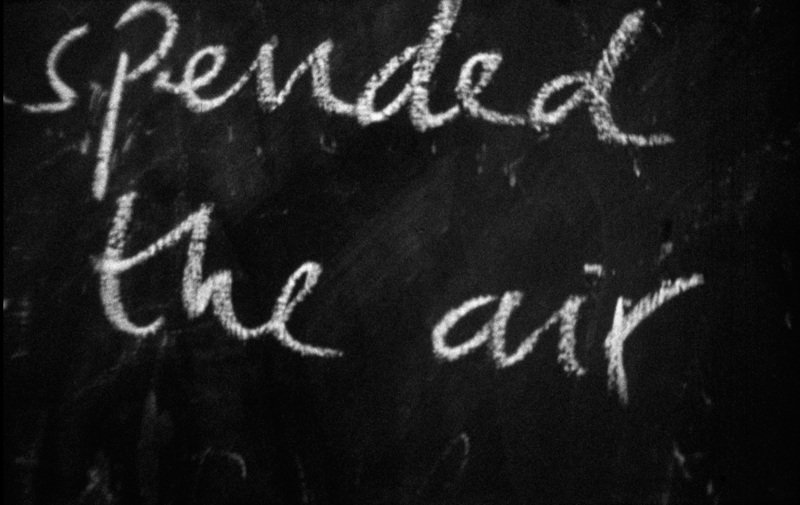 spended
the air